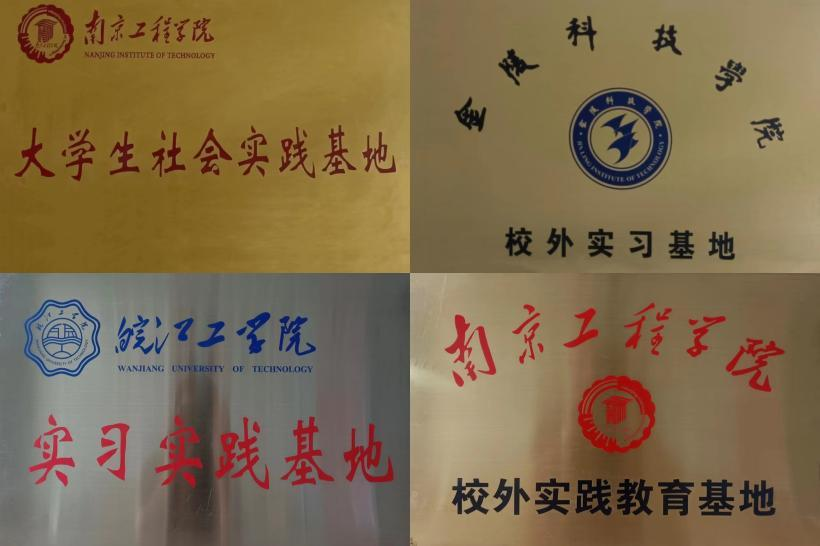 南京工程学院
NANJING INSTITUTE OF TECHNOLOGY
大学生社会实践基地
金陵科技学院
金陵科技学院
JINLING INSTITUTE OF TECHNOLOGY
校外实习基地
皖江工学院
皖江工学院
WANJIANG UNIVERSITY OF TECHNOLOGY
实习实践基地
南京工程学院
校外实践教育基地